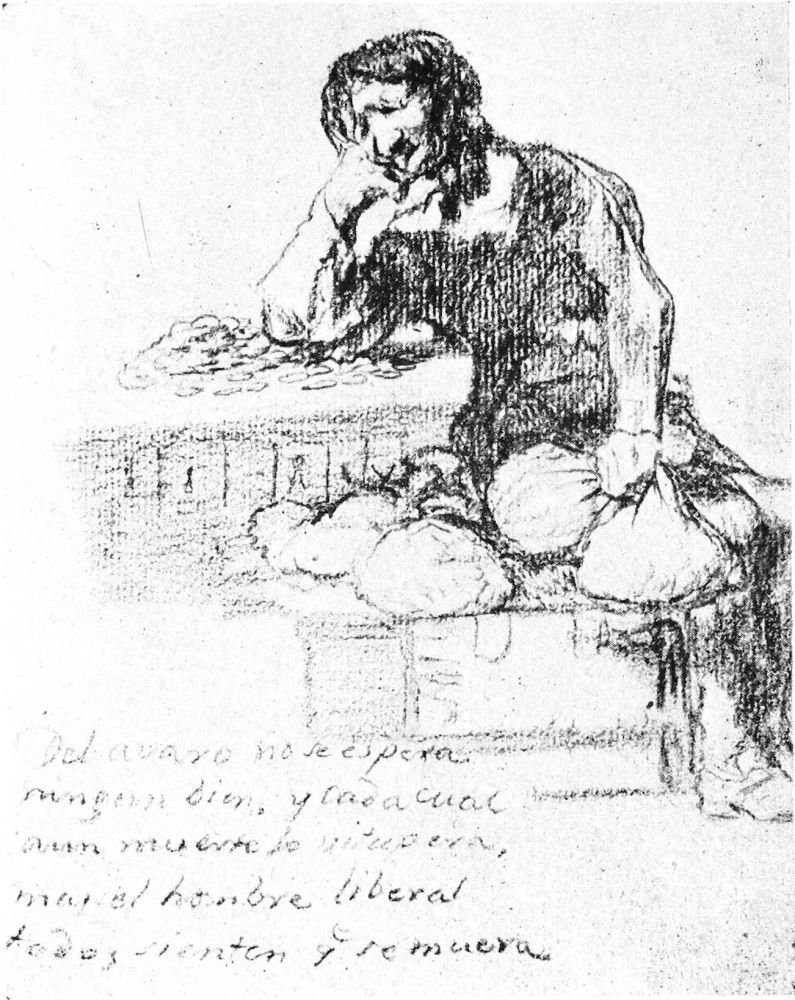 Del avaro no se espera
ningun bien, y cada cual
aun muerto lo vitupera,
mas el hombre liberal
todos sienten q̃ se muera